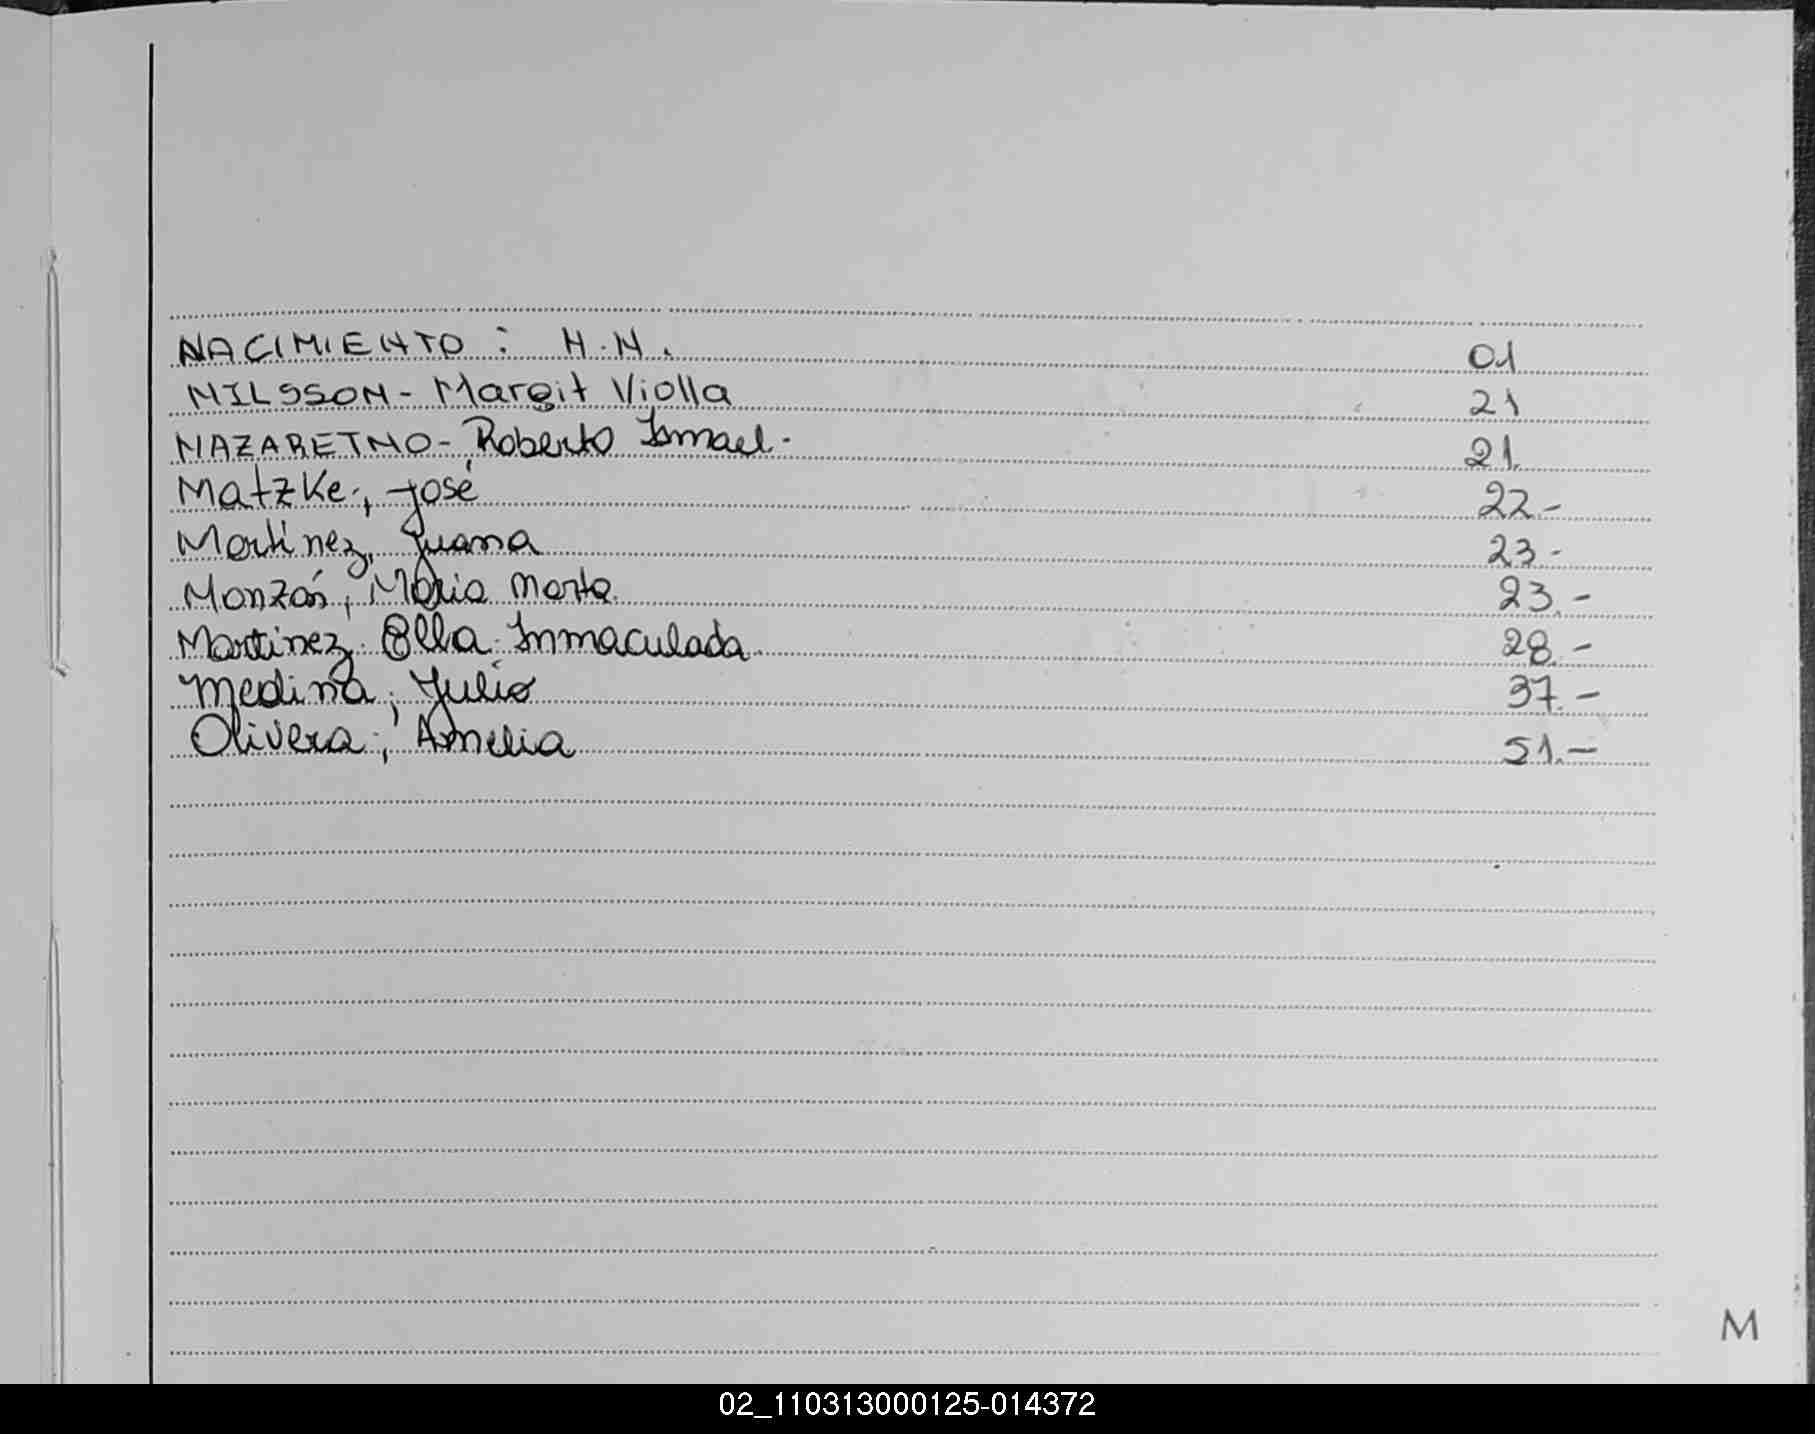 NACIMIENTO: N.N. 01
NILSSON - Margit Violla 21
NAZARETNO - Roberto Ismael - 21.
Matzke, José 22.-
Martínez, Juana 23.-
Monzón, María Marta. 23.-
Martinez Ella Inmaculada. 28.-
Medina, Julio 37.-
Olivera, Amelia 51.-
M
02_110313000125-014372